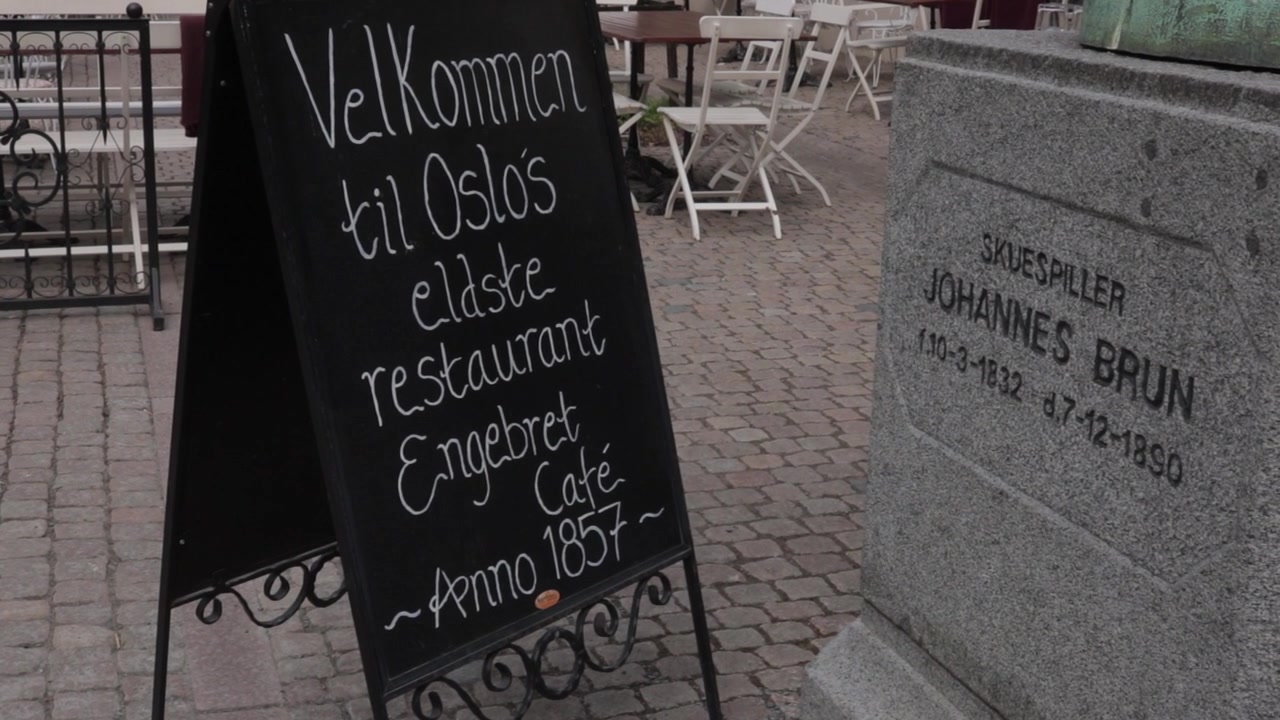 Velkommen
til Oslo's
eldste
restaurant
Engebret
Café
~ Anno 1857 ~
SKUESPILLER
JOHANNES BRUN
f.10-3-1832 d.7-12-1890